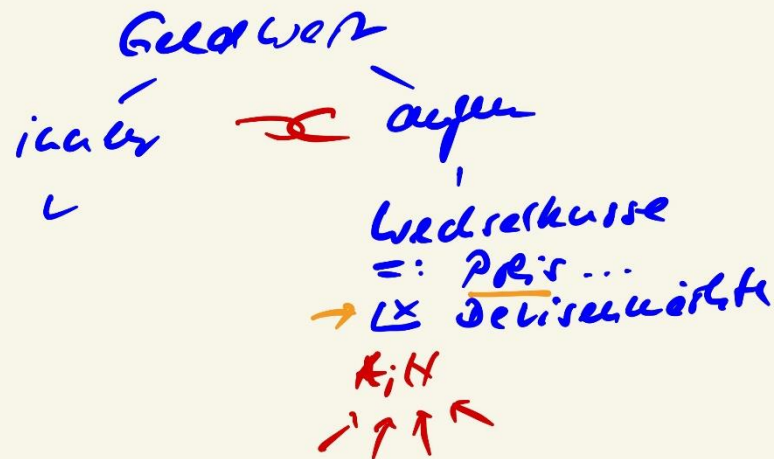 Geldwert
innen außen
Wechselkurse
=: Preis ...
Devisenmärkte
A; N